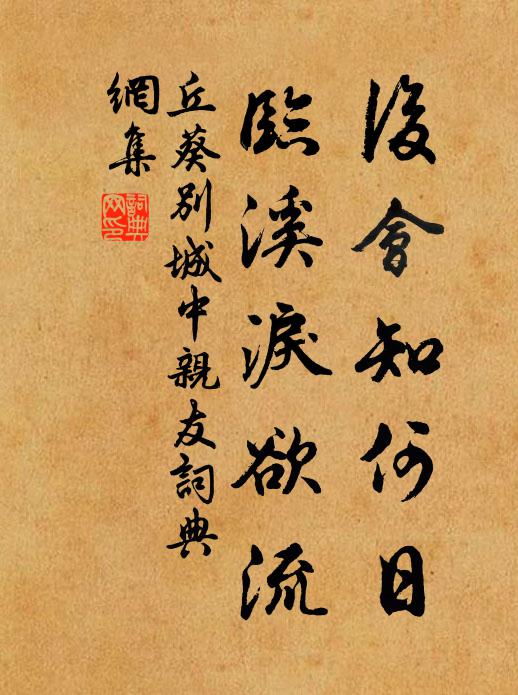 後會知何日
臨溪淚欲流
丘葵別城中親友詞典
網集
詞典
網印